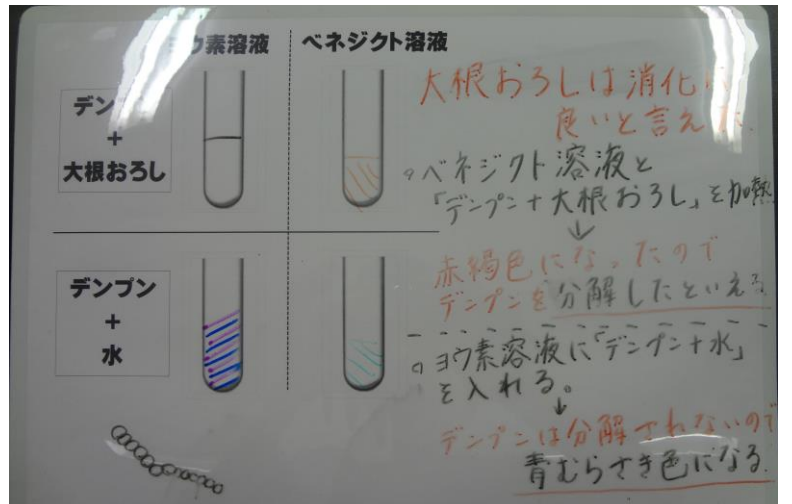 ウ素溶液
ベネジクト溶液
デンプ
+
大根おろし
デンプン
+
水
大根おろしは消化
良いと言えた
ベネジクト溶液と
「デンプン+大根おろし」を加熱
↓
赤褐色になったので
デンプンを分解したといえる
ヨウ素溶液に「デンプン+水」
を入れる。
↓
デンプンは分解されないので
青むらさき色になる